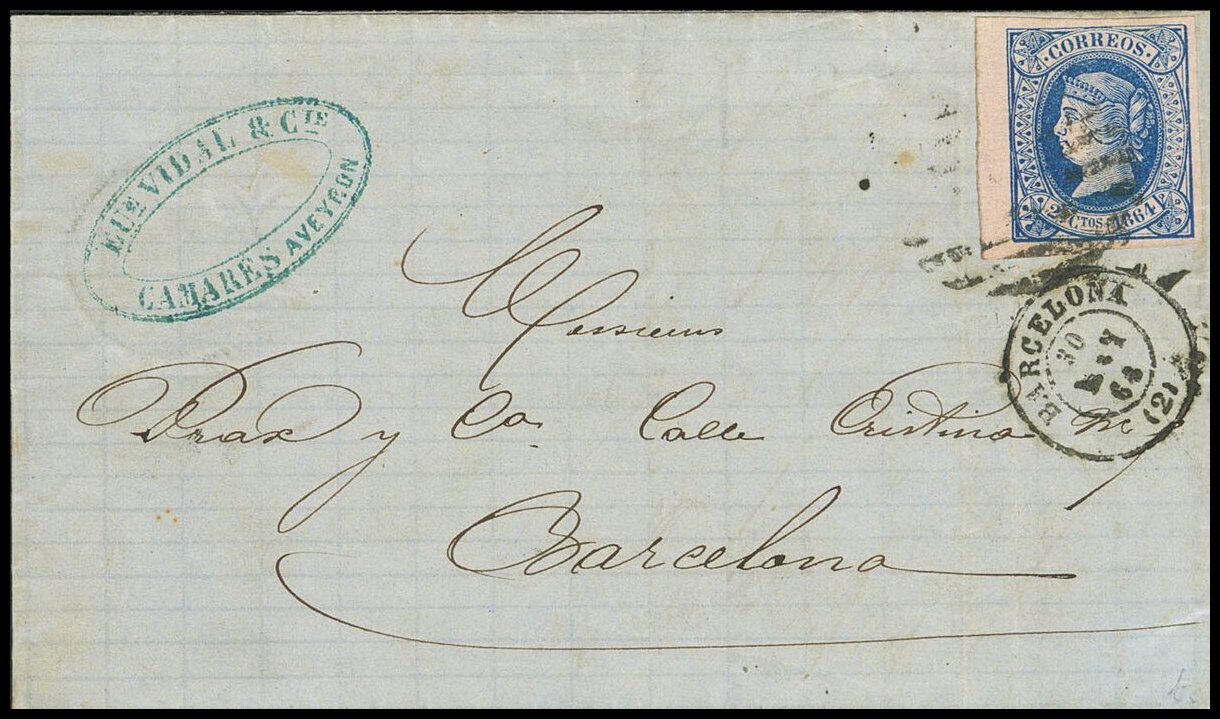 VIDAL & CIE
CAMARES AVEYRON
CORREOS
CTOS 1864
BARCELONA
30
68
(2)
Messieurs
Drax y Ca. Calle Cristina
Barcelona